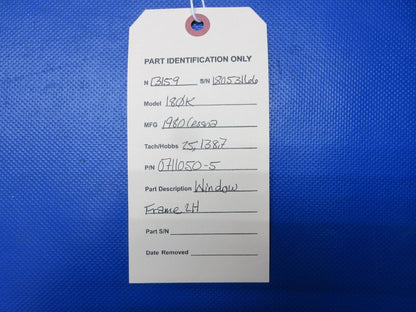 PART IDENTIFICATION ONLY
N 13159 S/N 18053166
Model 180K
MFG 1980 Cessna
Tach/Hobbs 25,138.7
P/N 0711050-5
Part Description Window
Frame LH
Part S/N
Date Removed